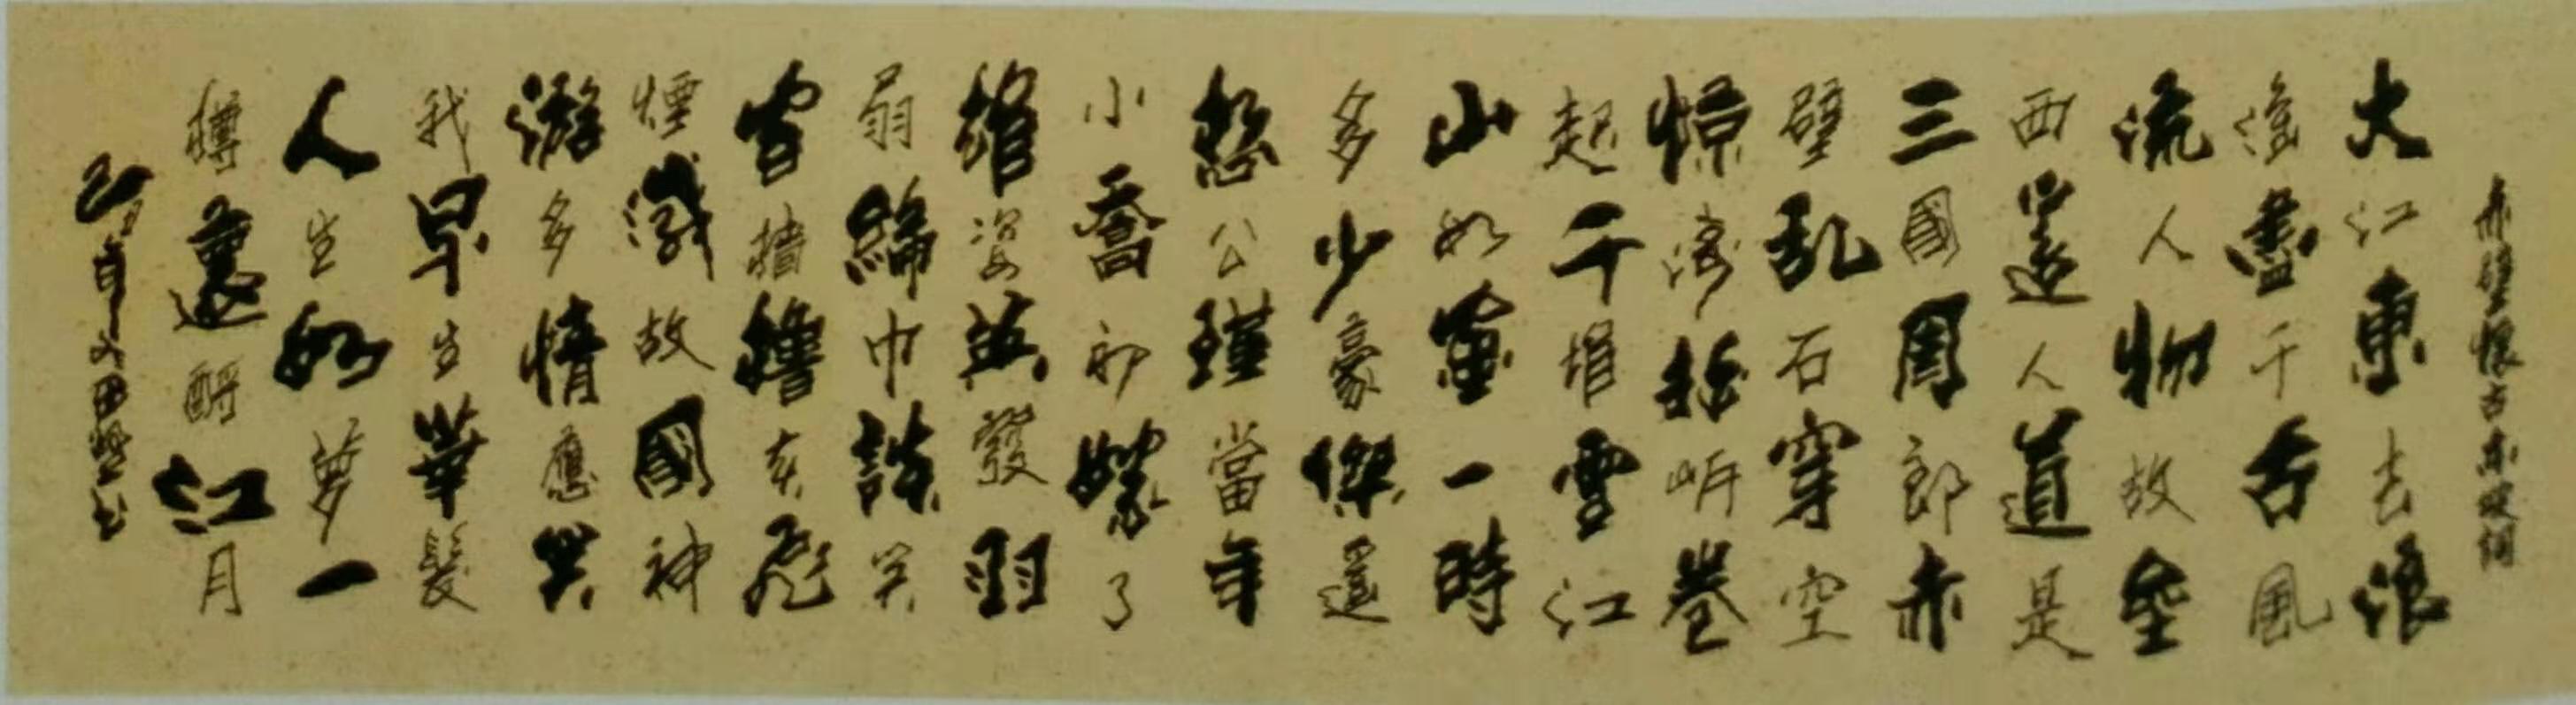 赤壁懷古東坡詞
大江東去浪
淘盡千古風
流人物故垒
西邊人道是
三國周郎赤
壁乱石穿空
惊濤拍岍卷
起千堆雪江
山如畫一時
多少豪傑遥
想公瑾當年
小喬初嫁了
雄姿英發羽
扇綸巾談笑
檣櫓灰飛
煙滅故國神
游多情應笑
我早生華髮
人生如夢一
樽還酹江月